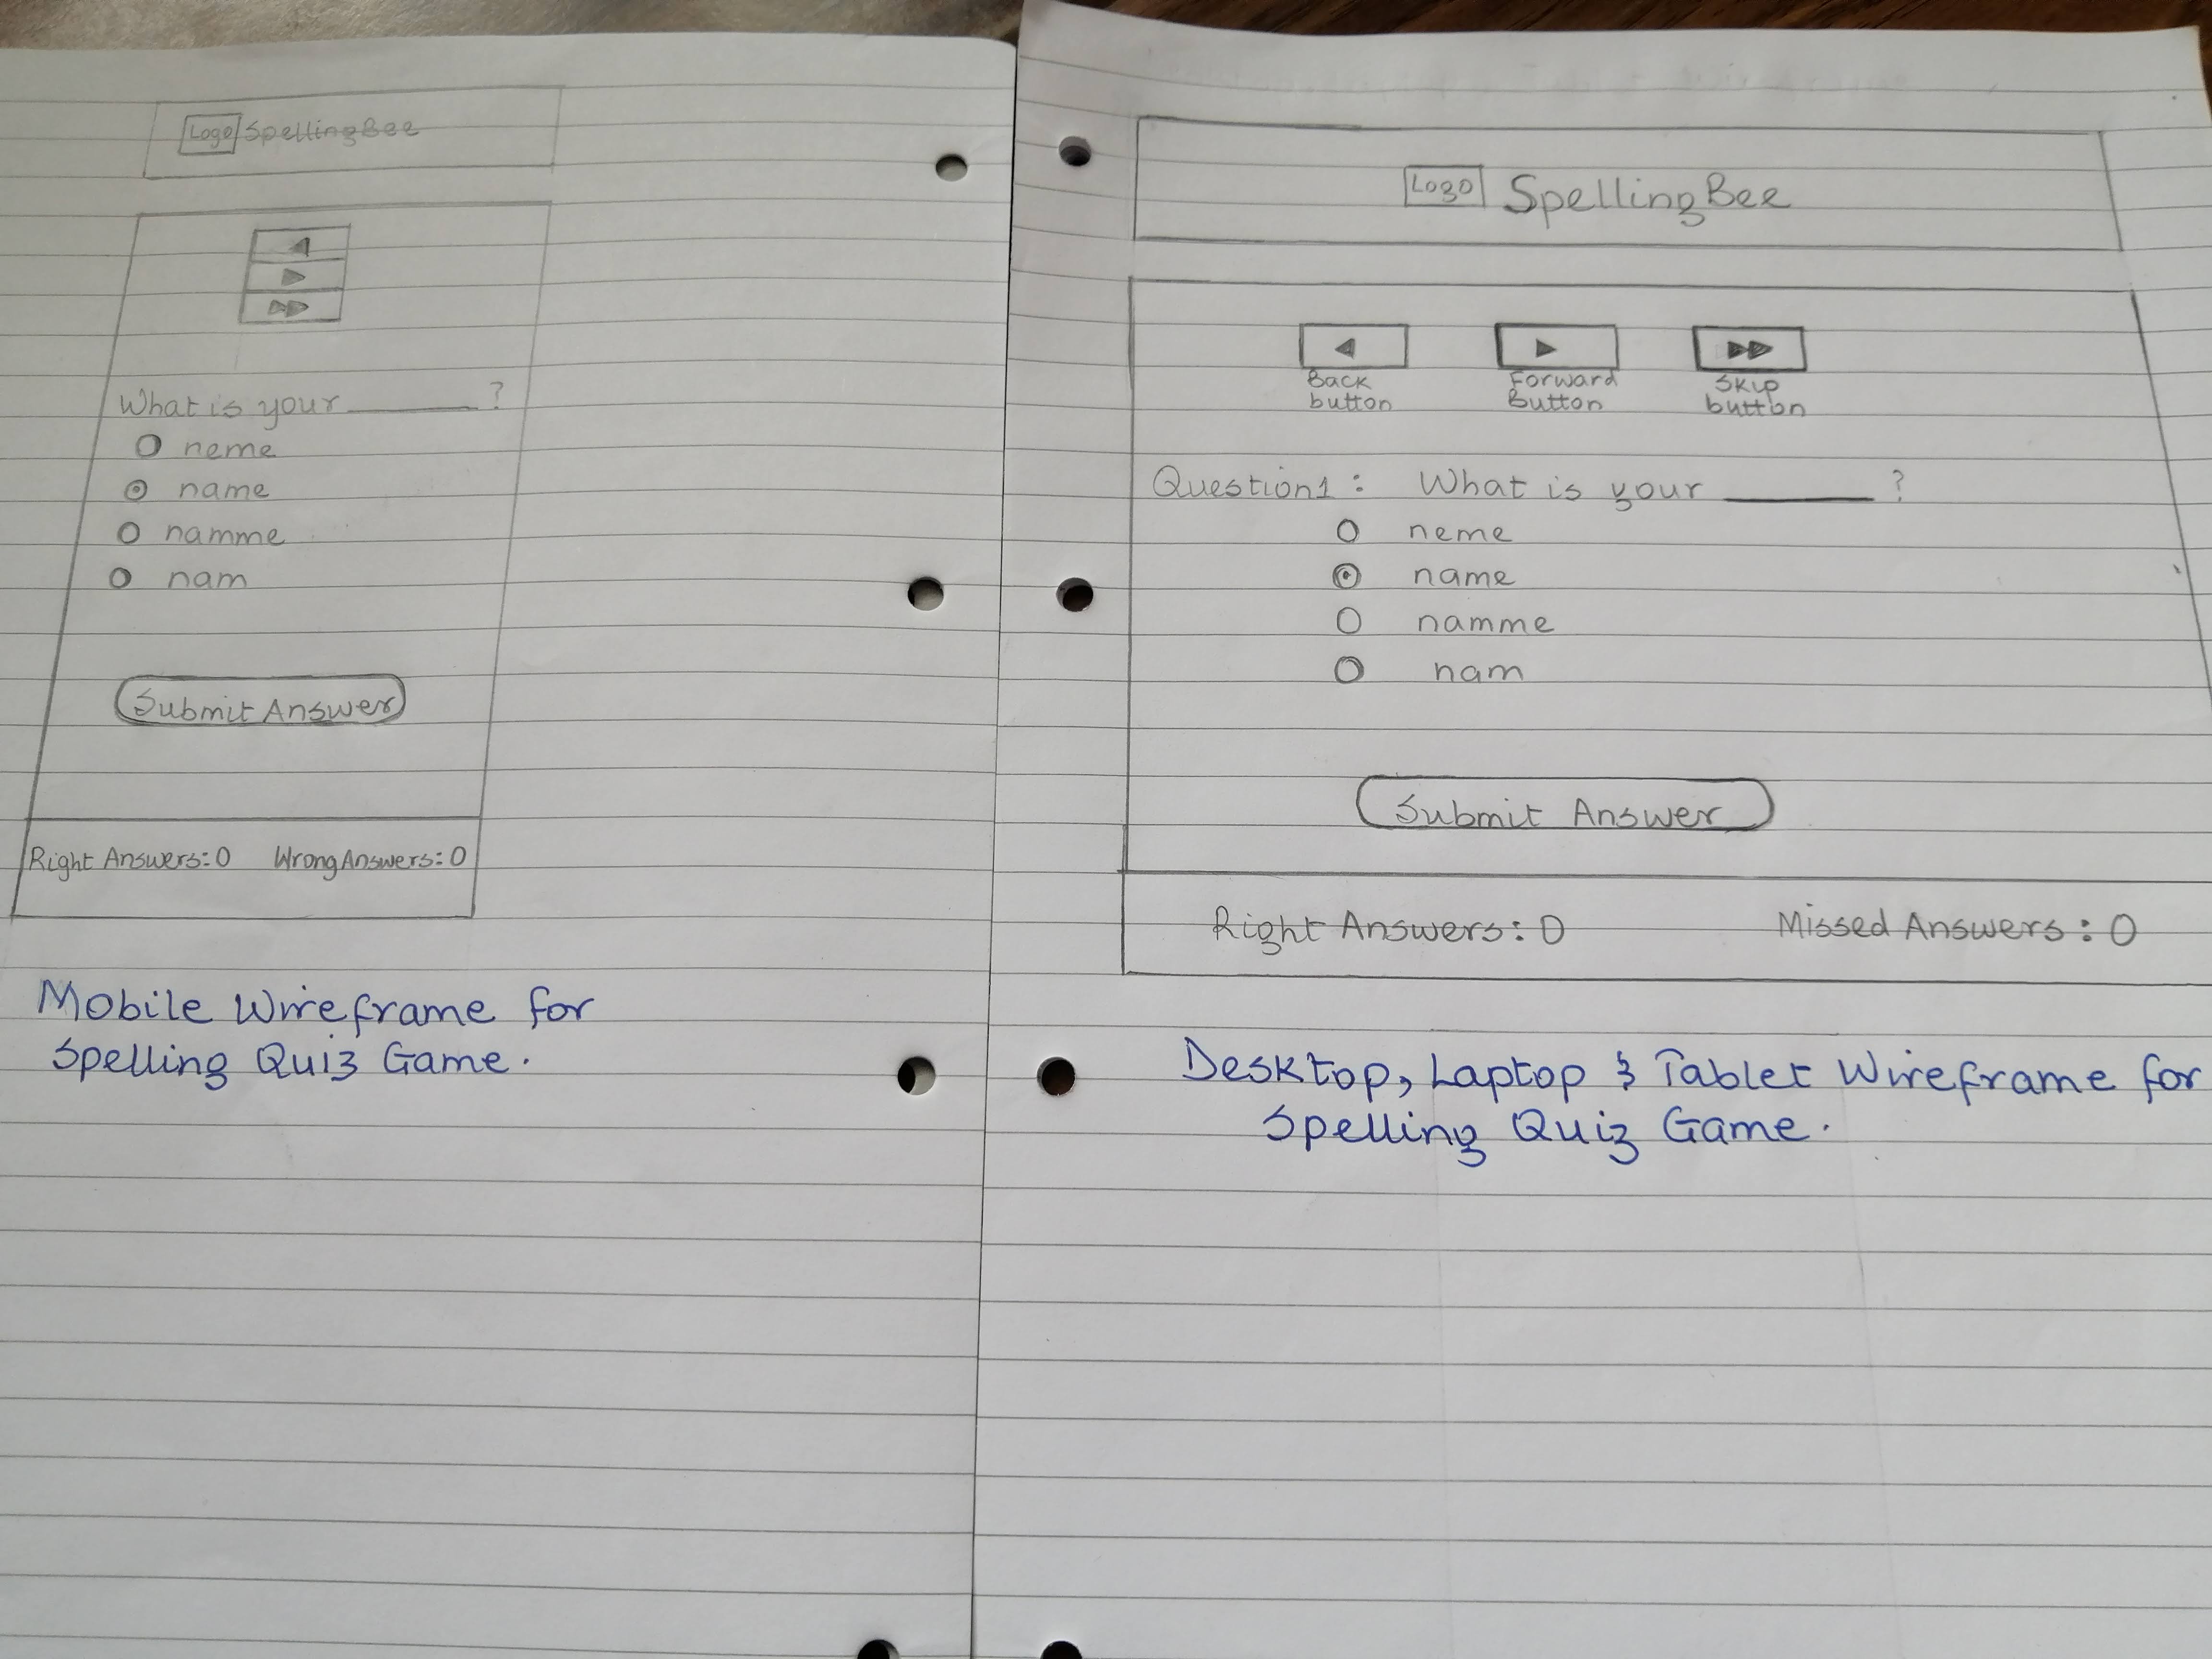 Logo SpellingBee
What is your ______ ?
neme
name
namme
nam
Submit Answer
Right Answers: 0 Wrong Answers: 0
Mobile Wireframe for
Spelling Quiz Game.
Logo SpellingBee
Back button
Forward Button
Skip button
Question1: What is your ______ ?
neme
name
namme
nam
Submit Answer
Right Answers: 0 Missed Answers: 0
Desktop, Laptop & Tablet Wireframe for
Spelling Quiz Game.